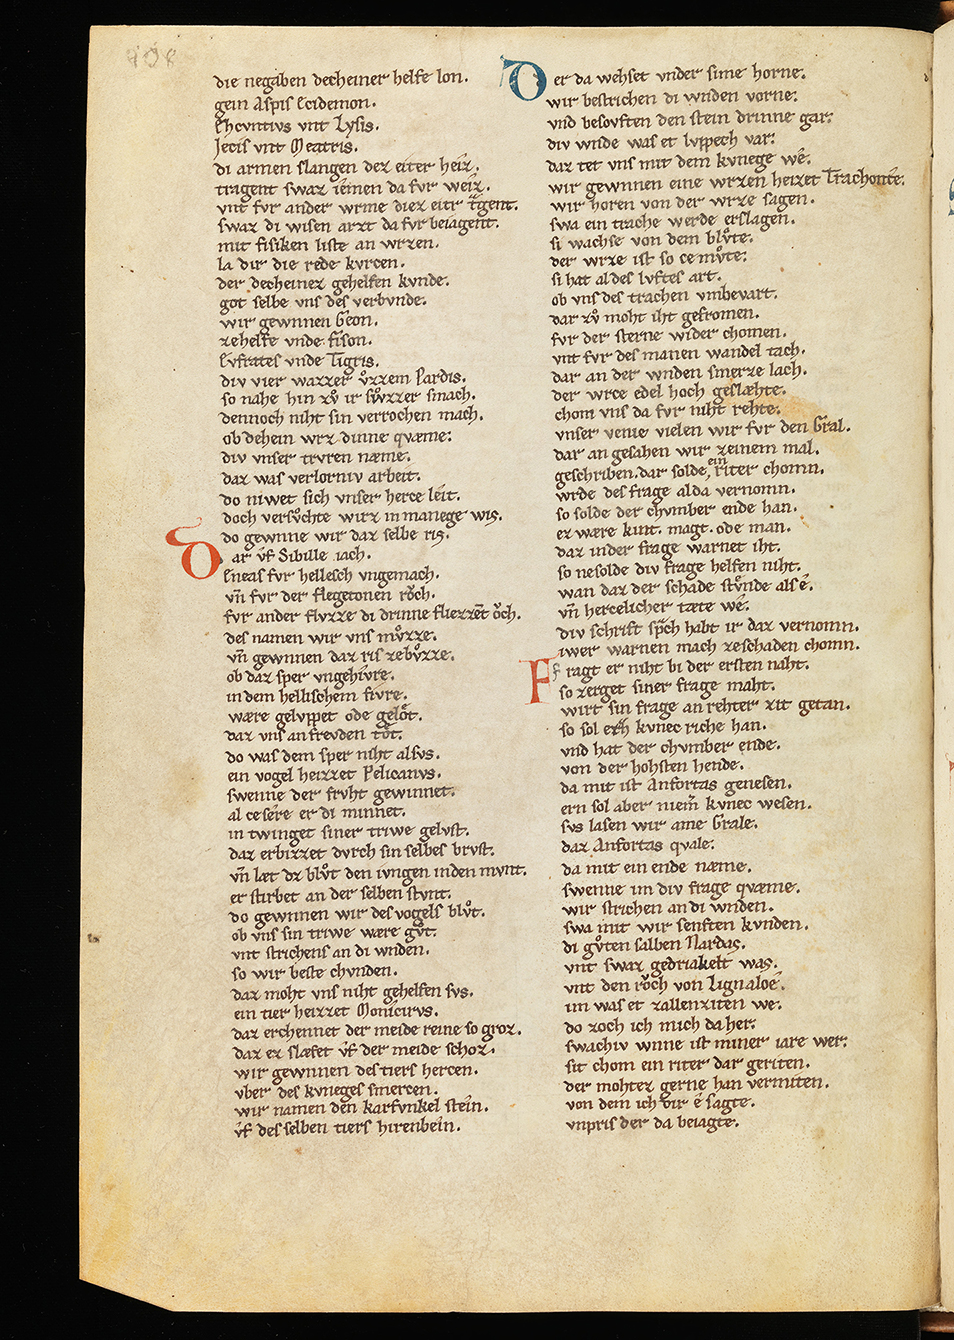 die negaben decheiner helfe lon.
gein Aspis Ecidemon.
Ehcvntivs vnt Lysis.
Jecis vnt Meatris.
di armen slangen dez eiter heiz.
tragent swaz iemen da fvr weiz.
vnt fvr ander wrme diez eitr tragent.
swaz di wisen arzt da fvr beiagent.
mit fisiken liste an wrzen.
la dir die rede kvrcen.
der decheinez gehelfen kvnde.
got selbe vns des verbvnde.
wir gewnnen Geon.
zehelfe vnde fison.
Evfrates vnde Tigris.
div vier wazzer vͦzzem Pardis.
so nahe hin zvͦ ir svͦzzer smach.
dennoch niht sin verrochen mach.
ob dehein wrz dinne qvæme.
div vnser trvren næme.
daz was verlorniv arbeit.
do niwet sich vnser herce leit.
doch versvͦchte wirz in manege wis.
do gewnne wir daz selbe ris.
Dar vf Sibille iach.
Eneas fvr hellesch vngemach.
vn̄ fvr der flegetonen roͮch.
fvr ander flvzze di drinne fliezzēt oͮch.
des namen wir vns mvͦzze.
vn̄ gewnnen daz ris zebvͦzze.
ob daz sper vngehivre.
in dem hellischem fivre.
wære gelvppet ode geloͤt.
daz vns an frevden tôt.
do was dem sper niht alsvs.
ein vogel heizzet Pelicanvs.
swenne der frvht gewinnet.
al ce sere er di minnet.
in twinget siner triwe gelvst.
daz erbizzet dvrch sin selbes brvst.
vn̄ læt dz blvͦt den ivngen in den mvnt.
er stirbet an der selben stvnt.
do gewnnen wir des vogels blvͦt.
ob vns sin triwe wære gvͦt.
vnt strichens an di wnden.
so wir beste chvnden.
daz moht vns niht gehelfen svs.
ein tier heizzet Monicirvs.
daz erchennet der meide reine so groz.
daz ez slæfet vf der meide schoz.
wir gewnnen des tiers hercen.
vber des kvneges smercen.
wir namen den karfvnkel stein.
vf des selben tiers hirenbein.
Der da wehset vnder sime horne.
wir bestrichen di wnden vorne.
vnd besovften den stein drinne gar.
div wnde was et lvppech var.
daz tet vns mit dem kvnege wê.
wir gewnnen eine wrzen heizet Trachontê.
wir horen von der wrze sagen.
swa ein trache werde erslagen.
si wachse von dem blvͦte.
der wrze ist so ce mvͦte.
si hat al des lvftes art.
ob vns des trachen vmbevart.
dar zvͦ moht iht gefromen.
fvr der sterne wider chomen.
vnt fvr des manen wandel tach.
dar an der wnden smerze lach.
der wrce edel hoch geslæhte.
chom vns da fvr niht rehte.
vnser venie vielen wir fvr den Gral.
dar an gesahen wir zeinem mal.
geschriben. dar solde ein riter chomn.
wrde des frage alda vernomn.
so solde der chvmber ende han.
ez wære kint. magt. ode man.
daz in der frage warnet iht.
so ne solde div frage helfen niht.
wan daz der schade stvͦnde als ê.
vn̄ hercelicher tæte wê.
div schrift sp̄ch habt ir daz vernomn.
iwer warnen mach ze schaden chomn.
Fragt er niht bi der ersten naht.
so zerget siner frage maht.
wirt sin frage an rehter zit getan.
so sol erh kvnec riche han.
vnd hat der chvmber ende.
von der hohsten hende.
da mit ist Anfortas genesen.
ern sol aber niem̄ kvnec wesen.
svs lasen wir ame Grale.
daz Anfortas qvale.
da mit ein ende næme.
swenne im div frage qvæme.
wir strichen an di wnden.
swa mit wir senften kvnden.
di gvͦten salben Nardas.
vnt swaz gedriakelt was.
vnt den roͮch von Lignaloê.
im was et zallen ziten we.
do zoch ich mich da her.
swachiv wnne ist miner iare wer.
sit chom ein riter dar geriten.
der mohtez gerne han vermiten.
von dem ich dir ê sagte.
vnpris der da beiagte.